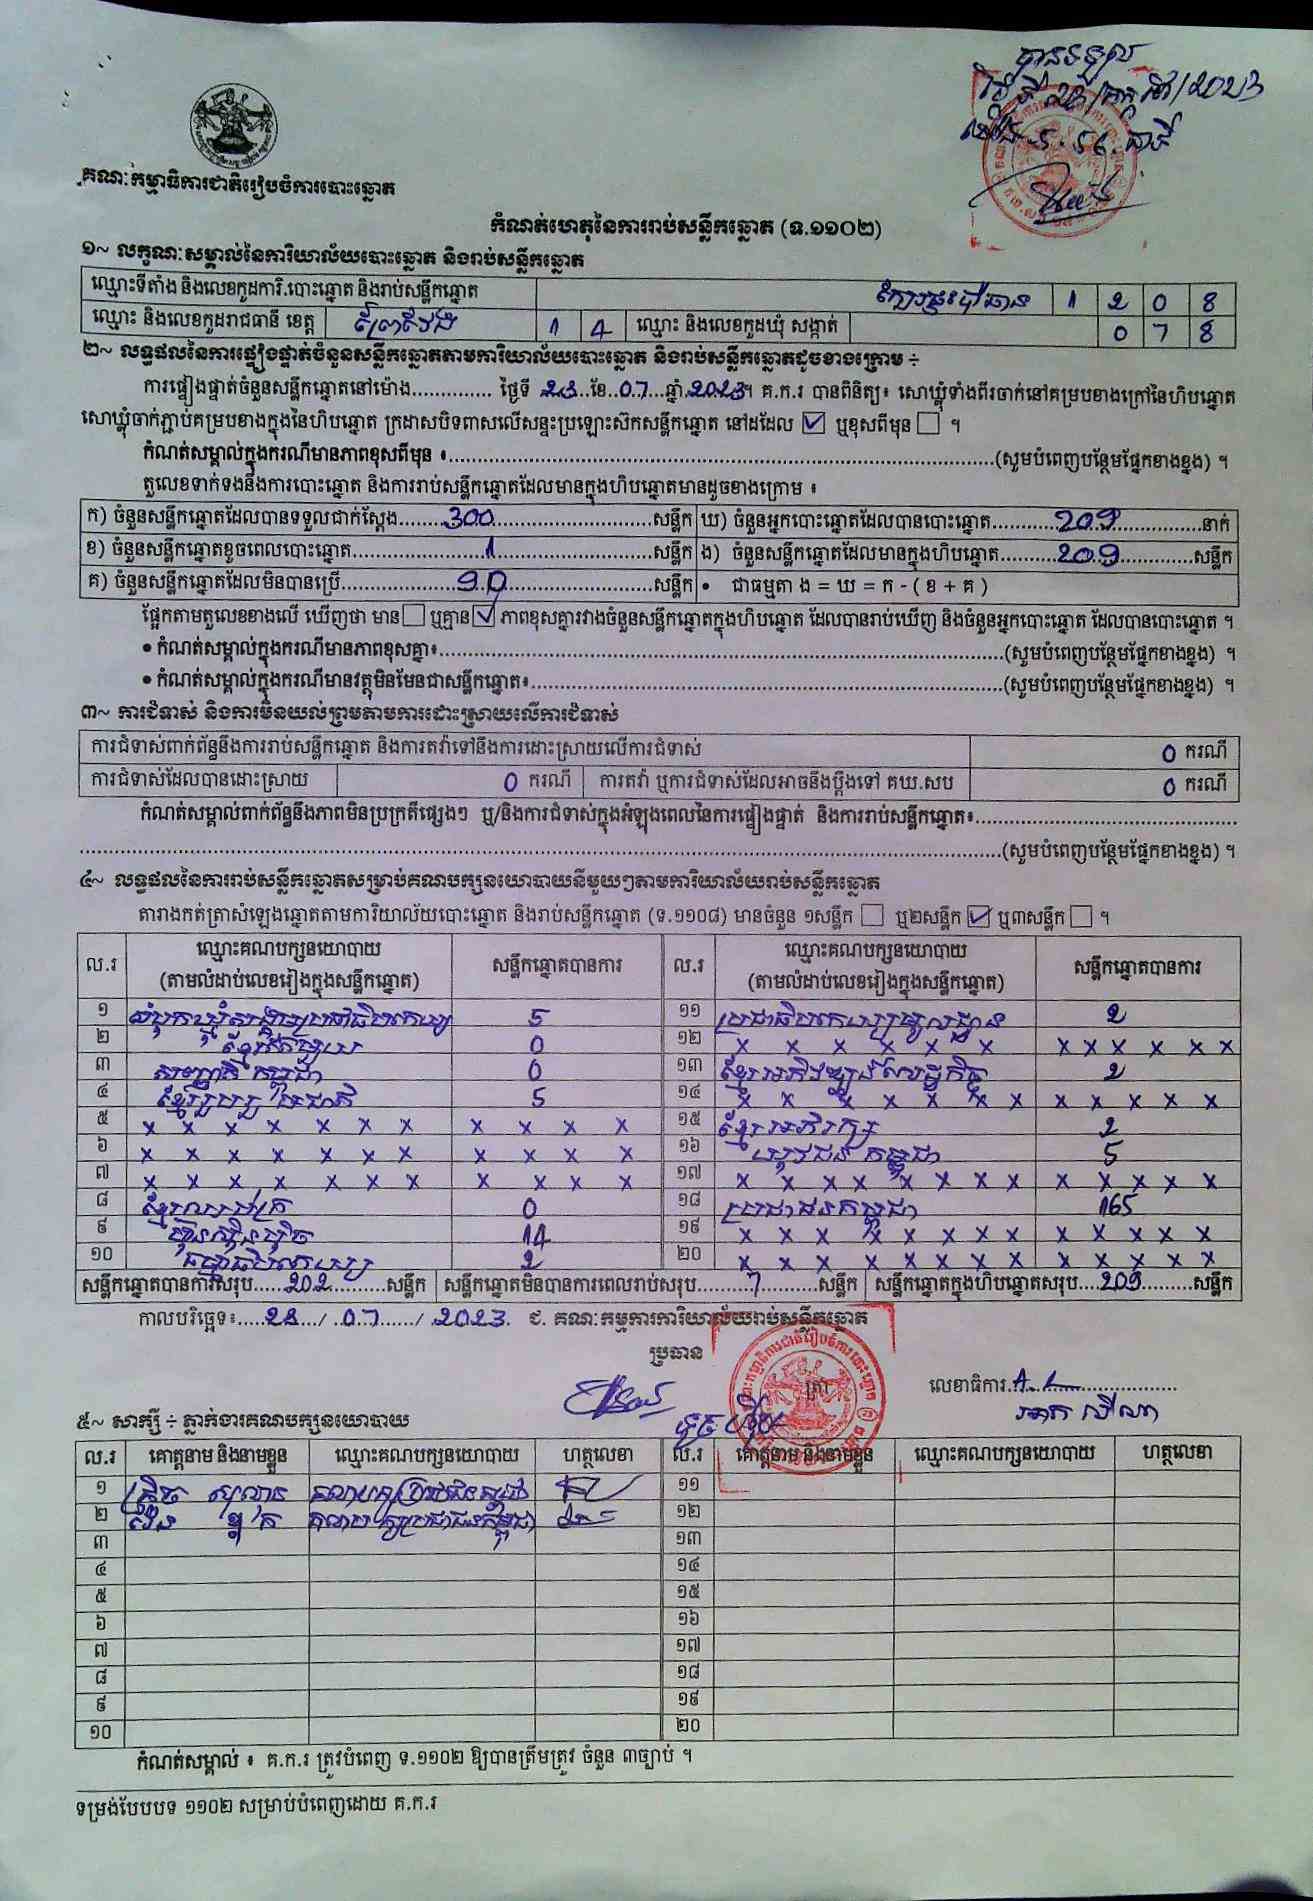 បានទទួល
គណៈកម្មាធិការជាតិរៀបចំការបោះឆ្នោត
កំណត់ហេតុនៃការរាប់សន្លឹកឆ្នោត (ទ.១១០២)
១~ លក្ខណៈសម្គាល់នៃការិយាល័យបោះឆ្នោត និងរាប់សន្លឹកឆ្នោត
ឈ្មោះទីតាំង និងលេខកូដការិ.បោះឆ្នោត និងរាប់សន្លឹកឆ្នោត 1 2 0 8
ឈ្មោះ និងលេខកូដរាជធានី ខេត្ត ព្រៃវែង 1 4 ឈ្មោះ និងលេខកូដឃុំ សង្កាត់ 0 7 8
២~ លទ្ធផលនៃការផ្ទៀងផ្ទាត់ចំនួនសន្លឹកឆ្នោតតាមការិយាល័យបោះឆ្នោត និងរាប់សន្លឹកឆ្នោតដូចខាងក្រោម ÷
ការផ្ទៀងផ្ទាត់ចំនួនសន្លឹកឆ្នោតនៅម៉ោង.............. ថ្ងៃទី 23 ខែ 07 ឆ្នាំ 2023។ គ.ក.រ បានពិនិត្យ៖ សោឃ្លុំទាំងពីរចាក់នៅគម្របខាងក្រៅនៃហិបឆ្នោត
សោឃ្លុំចាក់ភ្ជាប់គម្របខាងក្នុងនៃហិបឆ្នោត ក្រដាសបិទពាសលើសន្ទះប្រឡោះស៊កសន្លឹកឆ្នោត នៅដដែល ☑ ឬខុសពីមុន ☐ ។
កំណត់សម្គាល់ក្នុងករណីមានភាពខុសពីមុន ៖..........(សូមបំពេញបន្ថែមផ្នែកខាងខ្នង) ។
តួលេខទាក់ទងនឹងការបោះឆ្នោត និងការរាប់សន្លឹកឆ្នោតដែលមានក្នុងហិបឆ្នោតមានដូចខាងក្រោម ៖
ក) ចំនួនសន្លឹកឆ្នោតដែលបានទទួលជាក់ស្តែង 300 សន្លឹក ឃ) ចំនួនអ្នកបោះឆ្នោតដែលបានបោះឆ្នោត 209 នាក់
ខ) ចំនួនសន្លឹកឆ្នោតខូចពេលបោះឆ្នោត 1 សន្លឹក ង) ចំនួនសន្លឹកឆ្នោតដែលមានក្នុងហិបឆ្នោត 209 សន្លឹក
គ) ចំនួនសន្លឹកឆ្នោតដែលមិនបានប្រើ 90 សន្លឹក • ជាធម្មតា ង = ឃ = ក - ( ខ + គ )
ផ្អែកតាមតួលេខខាងលើ ឃើញថា មាន ☐ ឬគ្មាន ☑ ភាពខុសគ្នារវាងចំនួនសន្លឹកឆ្នោតក្នុងហិបឆ្នោត ដែលបានរាប់ឃើញ និងចំនួនអ្នកបោះឆ្នោត ដែលបានបោះឆ្នោត ។
• កំណត់សម្គាល់ក្នុងករណីមានភាពខុសគ្នា៖..........(សូមបំពេញបន្ថែមផ្នែកខាងខ្នង) ។
• កំណត់សម្គាល់ក្នុងករណីមានវត្ថុមិនមែនជាសន្លឹកឆ្នោត៖..........(សូមបំពេញបន្ថែមផ្នែកខាងខ្នង) ។
៣~ ការជំទាស់ និងការមិនយល់ព្រមតាមការដោះស្រាយលើការជំទាស់
ការជំទាស់ពាក់ព័ន្ធនឹងការរាប់សន្លឹកឆ្នោត និងការតវ៉ាទៅនឹងការដោះស្រាយលើការជំទាស់ 0 ករណី
ការជំទាស់ដែលបានដោះស្រាយ 0 ករណី ការតវ៉ា ឬការជំទាស់ដែលអាចនឹងប្តឹងទៅ គឃ.សប 0 ករណី
កំណត់សម្គាល់ពាក់ព័ន្ធនឹងភាពមិនប្រក្រតីផ្សេងៗ ឬ/និងការជំទាស់ក្នុងអំឡុងពេលនៃការផ្ទៀងផ្ទាត់ និងការរាប់សន្លឹកឆ្នោត៖..........
..........(សូមបំពេញបន្ថែមផ្នែកខាងខ្នង) ។
៤~ លទ្ធផលនៃការរាប់សន្លឹកឆ្នោតសម្រាប់គណបក្សនយោបាយនីមួយៗតាមការិយាល័យរាប់សន្លឹកឆ្នោត
តារាងកត់ត្រាសំឡេងឆ្នោតតាមការិយាល័យបោះឆ្នោត និងរាប់សន្លឹកឆ្នោត (ទ.១១០៨) មានចំនួន ១សន្លឹក ☐ ឬ២សន្លឹក ☑ ឬ៣សន្លឹក ☐ ។
ល.រ ឈ្មោះគណបក្សនយោបាយ (តាមលំដាប់លេខរៀងក្នុងសន្លឹកឆ្នោត) សន្លឹកឆ្នោតបានការ ល.រ ឈ្មោះគណបក្សនយោបាយ (តាមលំដាប់លេខរៀងក្នុងសន្លឹកឆ្នោត) សន្លឹកឆ្នោតបានការ
១ សំបុកឃ្មុំសង្គមប្រជាធិបតេយ្យ 5 ១១ ប្រជាធិបតេយ្យមូលដ្ឋាន 2
២ ខ្មែរតែមួយ 0 ១២ x x x x x x x x x x x x
៣ សញ្ជាតិកម្ពុជា 0 ១៣ ខ្មែរអភិវឌ្ឍន៍សេដ្ឋកិច្ច 2
៤ ខ្មែររួបរួមជាតិ 5 ១៤ x x x x x x x x x x x x
៥ x x x x x x x x x x x ១៥ ខ្មែរអភិរក្ស 2
៦ x x x x x x x x x x x ១៦ យុវជនកម្ពុជា 5
៧ x x x x x x x x x x x ១៧ x x x x x x x x x x x x
៨ ខ្មែរឈប់ក្រ 0 ១៨ ប្រជាជនកម្ពុជា 165
៩ ហ្វ៊ុនស៊ិនប៉ិច 14 ១៩ x x x x x x x x x x x x
១០ ធម្មាធិបតេយ្យ 2 ២០ x x x x x x x x x x x x
សន្លឹកឆ្នោតបានការសរុប 202 សន្លឹក សន្លឹកឆ្នោតមិនបានការពេលរាប់សរុប 7 សន្លឹក សន្លឹកឆ្នោតក្នុងហិបឆ្នោតសរុប 209 សន្លឹក
កាលបរិច្ឆេទ៖ 23 / 07 / 2023. ជ. គណៈកម្មការការិយាល័យរាប់សន្លឹកឆ្នោត
ប្រធាន
ត្រា
លេខាធិការ
៥~ សាក្សី ÷ ភ្នាក់ងារគណបក្សនយោបាយ
ល.រ គោត្តនាម និងនាមខ្លួន ឈ្មោះគណបក្សនយោបាយ ហត្ថលេខា ល.រ គោត្តនាម និងនាមខ្លួន ឈ្មោះគណបក្សនយោបាយ ហត្ថលេខា
១ គណបក្សប្រជាជនកម្ពុជា ១១
២ គណបក្សប្រជាជនកម្ពុជា ១២
៣ ១៣
៤ ១៤
៥ ១៥
៦ ១៦
៧ ១៧
៨ ១៨
៩ ១៩
១០ ២០
កំណត់សម្គាល់ ៖ គ.ក.រ ត្រូវបំពេញ ទ.១១០២ ឱ្យបានត្រឹមត្រូវ ចំនួន ៣ច្បាប់ ។
ទម្រង់បែបបទ ១១០២ សម្រាប់បំពេញដោយ គ.ក.រ